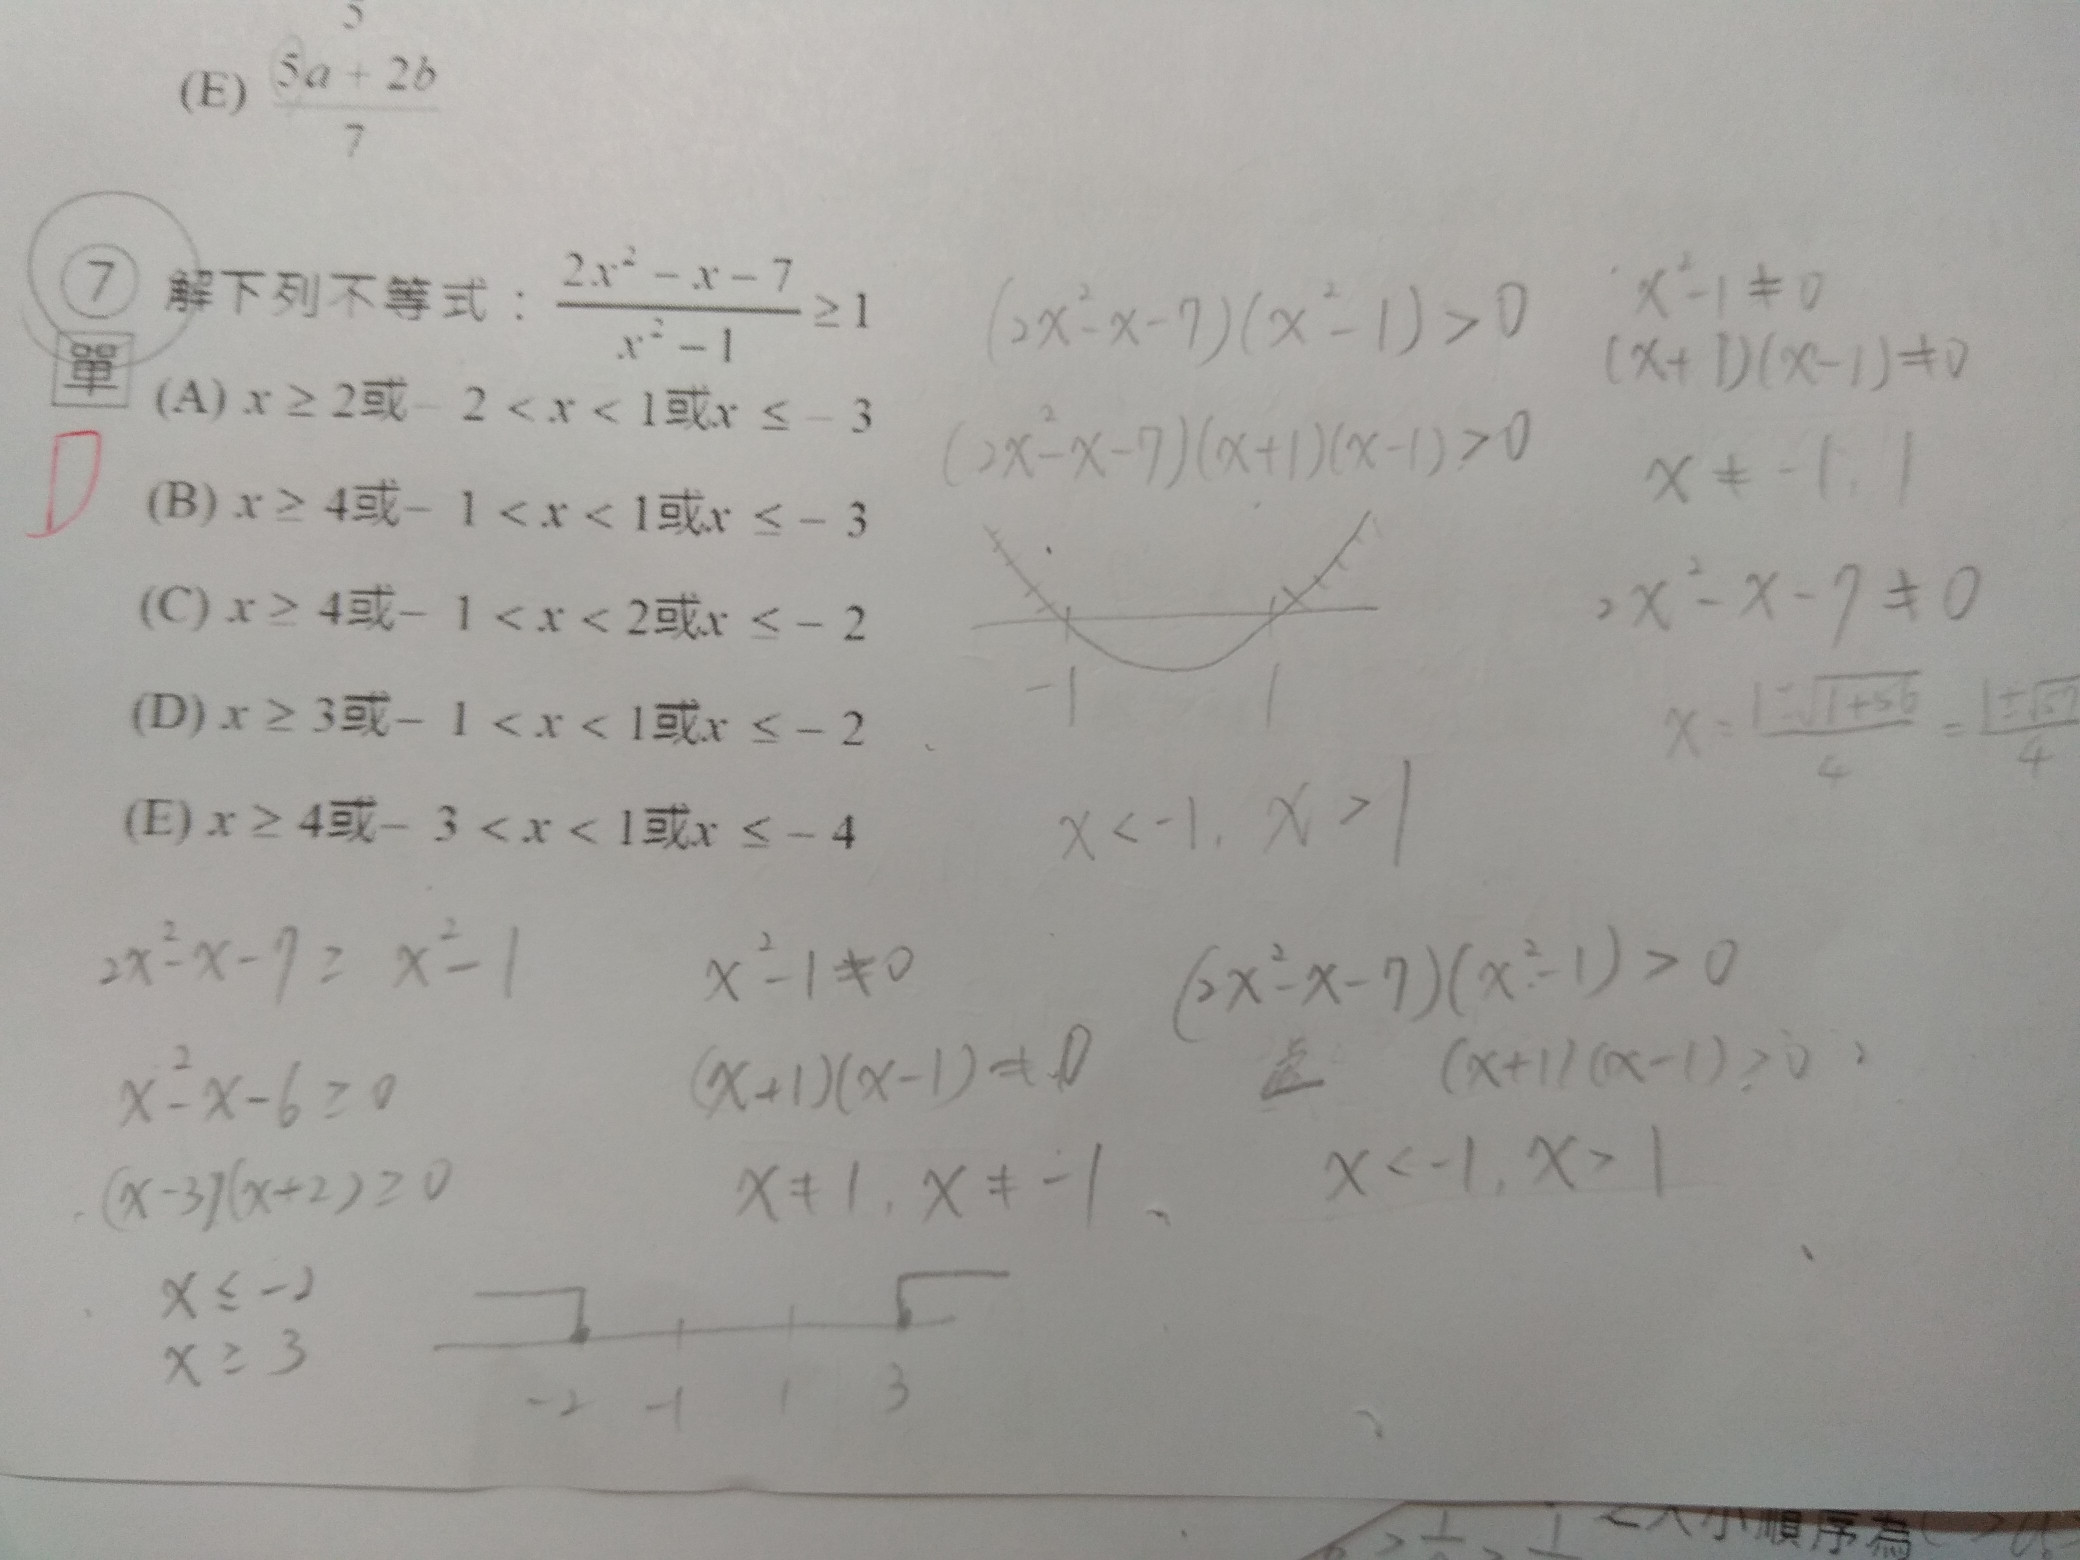 5
(E) 5a + 2b / 7
⑦ 解下列不等式： 2x² − x − 7 / x² − 1 ≥ 1
單
(A) x ≥ 2或− 2 < x < 1或x ≤ − 3
D
(B) x ≥ 4或− 1 < x < 1或x ≤ − 3
(C) x ≥ 4或− 1 < x < 2或x ≤ − 2
(D) x ≥ 3或− 1 < x < 1或x ≤ − 2
(E) x ≥ 4或− 3 < x < 1或x ≤ − 4
(2x²-x-7)(x²-1)>0
(2x²-x-7)(x+1)(x-1)>0
-1 1
x<-1, x>1
x²-1≠0
(x+1)(x-1)≠0
x≠-1, 1
2x²-x-7≠0
x=1±√1+56 / 4 = 1±√57 / 4
2x²-x-7≥x²-1
x²-x-6≥0
(x-3)(x+2)≥0
x≤-2
x≥3
-2 -1 1 3
x²-1≠0
(x+1)(x-1)≠0
x≠1, x≠-1
(2x²-x-7)(x²-1)>0
(x+1)(x-1)>0
x<-1, x>1
大小順序為